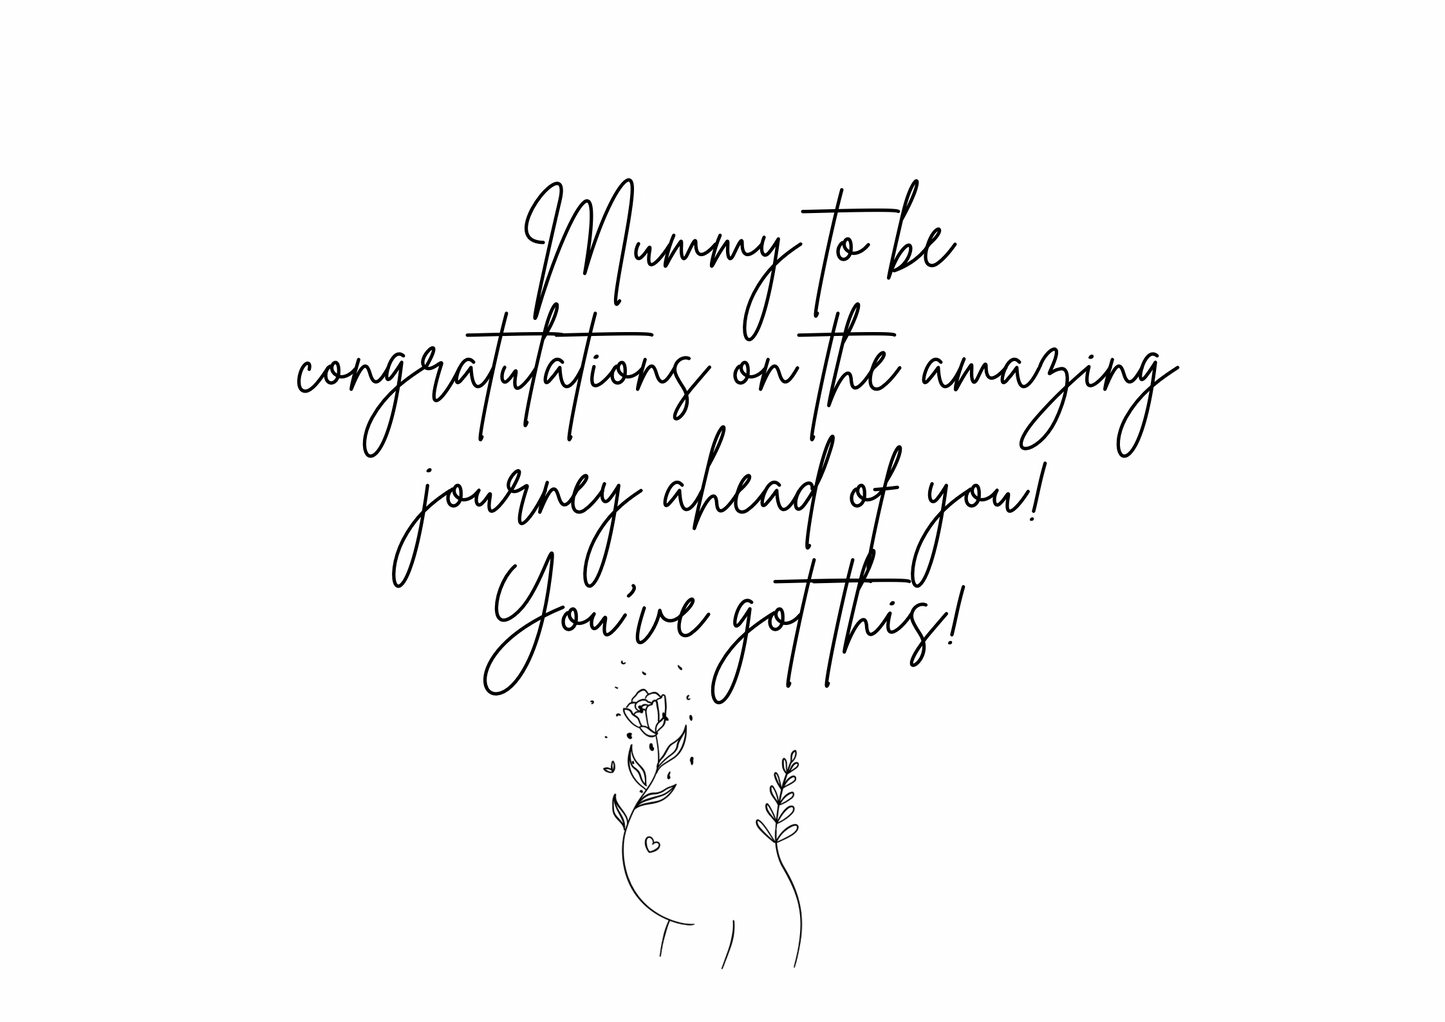 Mummy to be
congratulations on the amazing
journey ahead of you!
You've got this!